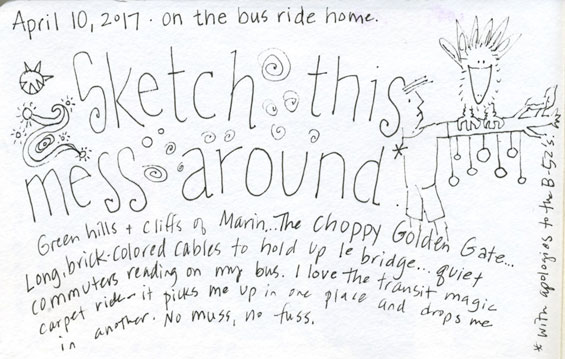 April 10, 2017. on the bus ride home.
Sketch this
mess around*
Green hills + cliffs of Marin... The choppy Golden Gate...
Long, brick-colored cables to hold up le bridge... quiet
commuters reading on my bus. I love the transit magic
carpet ride - it picks me up in one place and drops me
in another. No muss, no fuss.
* with apologies to the B-52's.